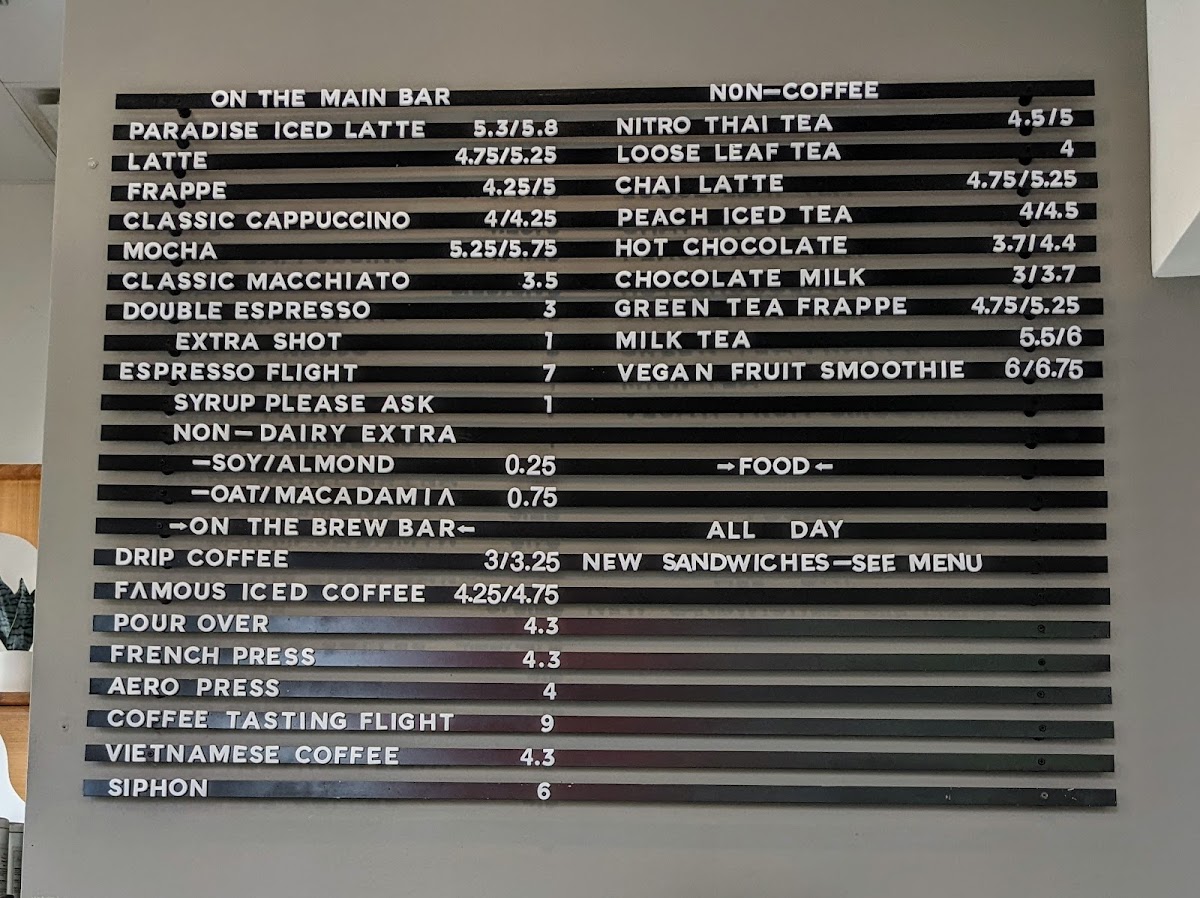 ON THE MAIN BAR
PARADISE ICED LATTE 5.3/5.8
LATTE 4.75/5.25
FRAPPE 4.25/5
CLASSIC CAPPUCCINO 4/4.25
MOCHA 5.25/5.75
CLASSIC MACCHIATO 3.5
DOUBLE ESPRESSO 3
EXTRA SHOT 1
ESPRESSO FLIGHT 7
SYRUP PLEASE ASK 1
NON-DAIRY EXTRA
-SOY/ALMOND 0.25
-OAT/MACADAMIA 0.75
→ON THE BREW BAR←
DRIP COFFEE 3/3.25
FAMOUS ICED COFFEE 4.25/4.75
POUR OVER 4.3
FRENCH PRESS 4.3
AERO PRESS 4
COFFEE TASTING FLIGHT 9
VIETNAMESE COFFEE 4.3
SIPHON 6
NON-COFFEE
NITRO THAI TEA 4.5/5
LOOSE LEAF TEA 4
CHAI LATTE 4.75/5.25
PEACH ICED TEA 4/4.5
HOT CHOCOLATE 3.7/4.4
CHOCOLATE MILK 3/3.7
GREEN TEA FRAPPE 4.75/5.25
MILK TEA 5.5/6
VEGAN FRUIT SMOOTHIE 6/6.75
→FOOD←
ALL DAY
NEW SANDWICHES-SEE MENU